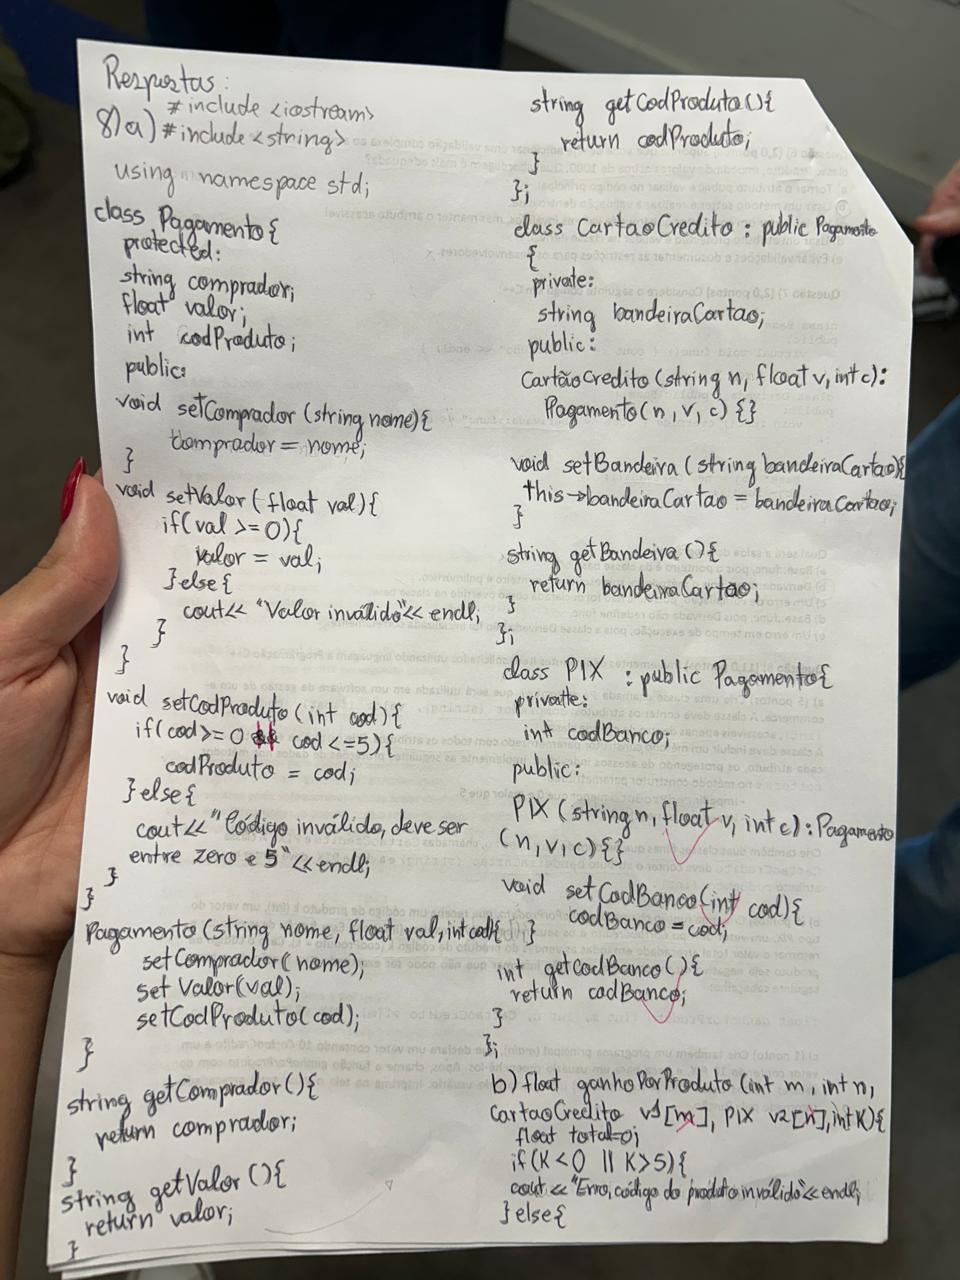 Respostas:
8)a) #include <iostream>
#include <string>
using namespace std;
class Pagamento{
protected:
string comprador;
float valor;
int codProduto;
public:
void setComprador (string nome){
comprador = nome;
}
void setValor (float val){
if(val >= 0){
valor = val;
}else{
cout<< "Valor inválido"<< endl;
}
}
void setCodProduto (int cod){
if(cod>= 0 && cod <=5){
codProduto = cod;
}else{
cout<< "Código inválido, deve ser
entre zero e 5" << endl;
}
}
Pagamento (string nome, float val, int cod){ }
setComprador(nome);
setValor(val);
setCodProduto(cod);
}
string getComprador(){
return comprador;
}
string getValor (){
return valor;
}
string getCodProduto (){
return codProduto;
}
};
class CartaoCredito : public Pagamento
{
private:
string bandeiraCartao;
public:
CartãoCredito (string n, float v, int c):
Pagamento (n, v, c) {}
void setBandeira (string bandeiraCartao){
this->bandeiraCartao = bandeiraCartao;
}
string getBandeira (){
return bandeiraCartao;
}
};
class PIX : public Pagamento{
private:
int codBanco;
public:
PIX (string n, float v, int c): Pagamento
(n, v, c) {}
void setCodBanco (int cod){
codBanco = cod;
int getCodBanco (){
return codBanco;
}
};
b) float ganhoPorProduto (int m, int n,
CartaoCredito v1[m], PIX v2[n], int K){
float total=0;
if(K<0 || K>5){
cout << "Erro, código do produto inválido"<< endl;
}else{